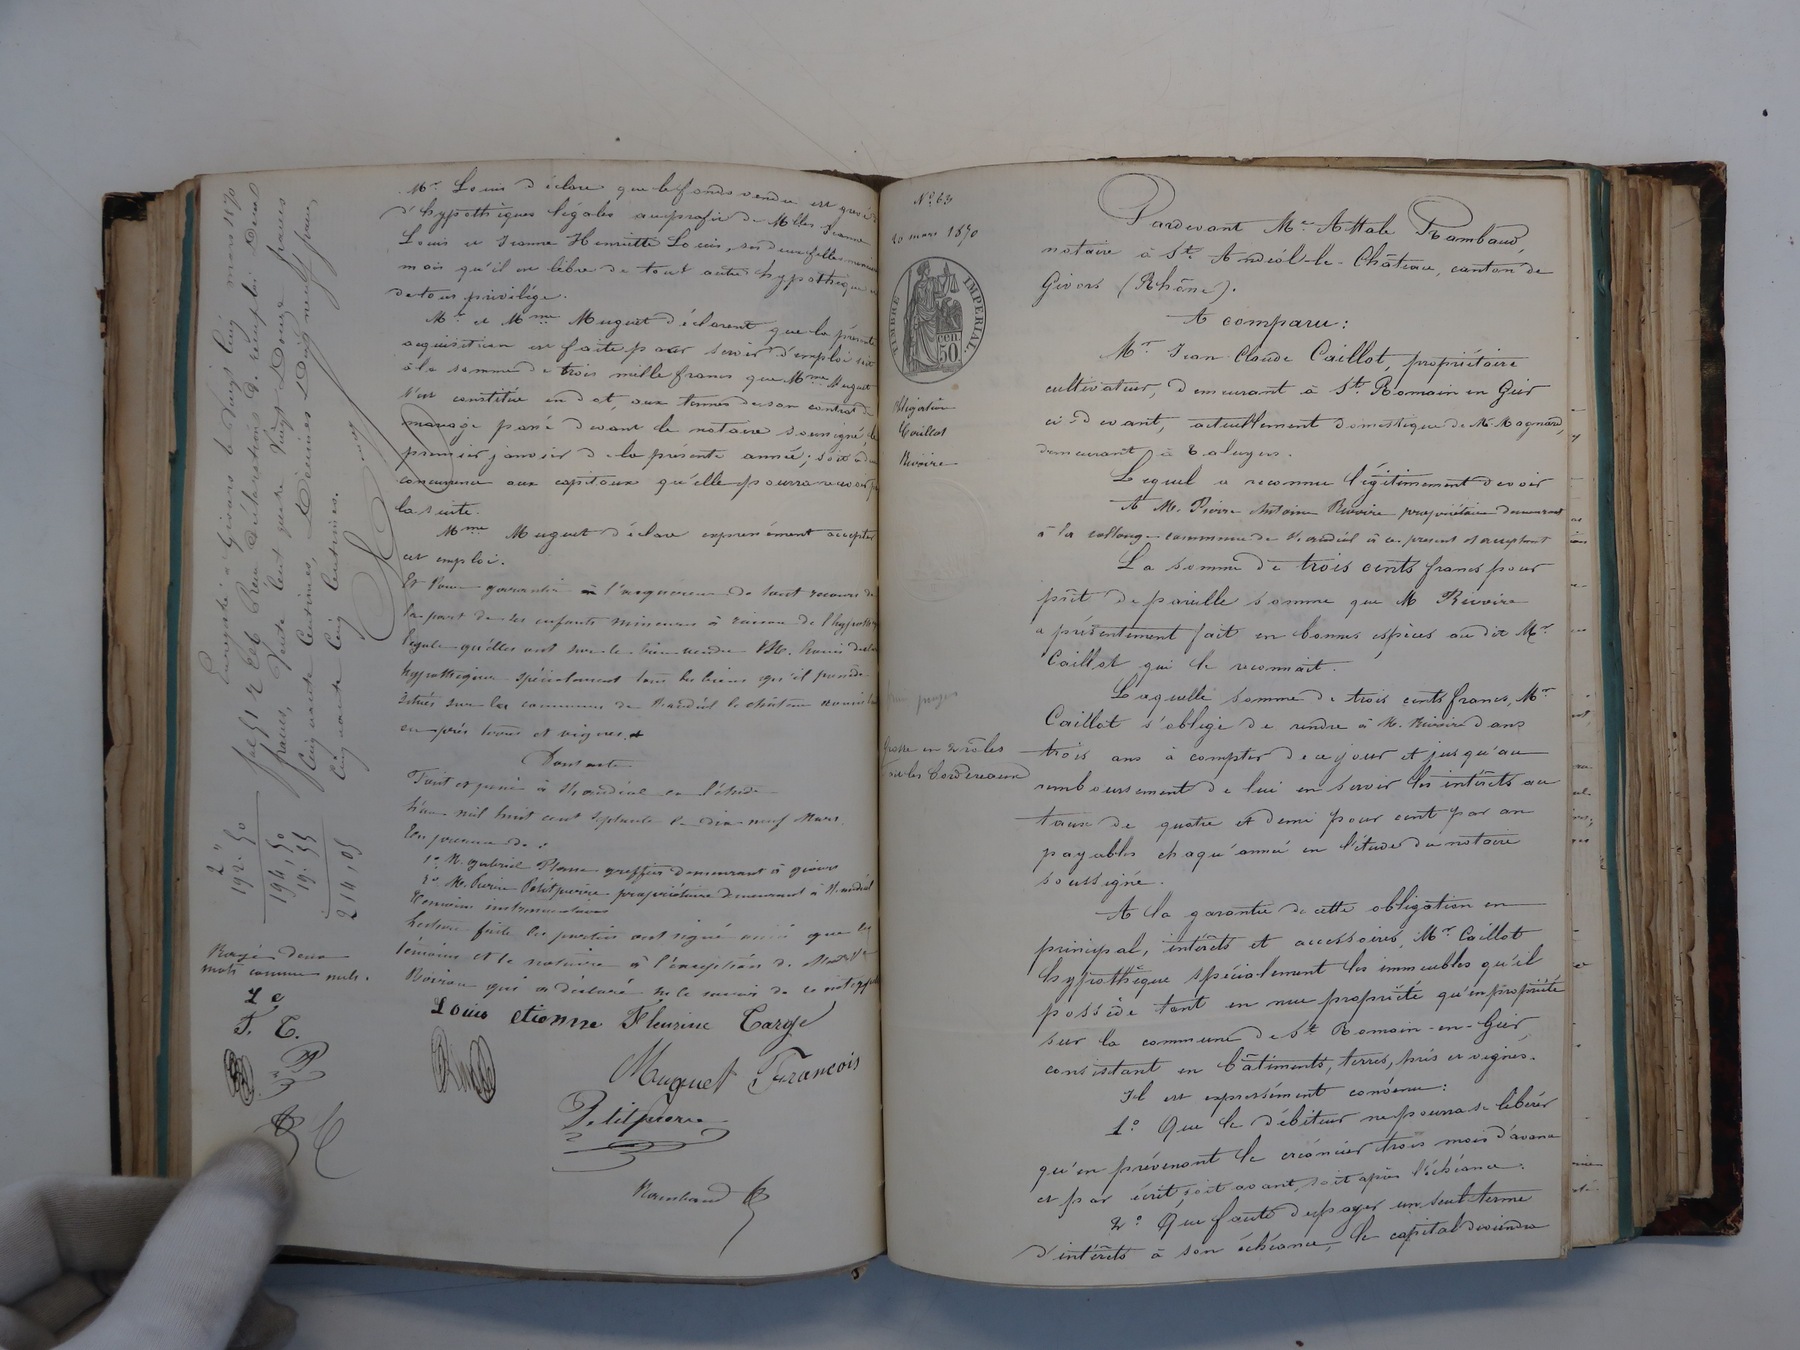 Mr Louis déclare que le fonds vendu est grevé
d'hypothèques légales au profit de Melles Jeanne
Louis et Jeanne Henriette Louis, ses deux filles mineures
mais qu'il est libre de tout autre hypothèque et
de tous privilége.
Mr et Mme Muguet déclarent que la présente
acquisition est faite pour servir d'emploi soit
à la somme de trois mille francs que Mme Muguet
s'est constitué en dot, aux termes de son contrat de
mariage passé devant le notaire soussigné, le
premier janvier de la présente année; soit à due
concurrence aux capitaux qu'elle pourra recevoir par
la suite.
Mme Muguet déclare expressément accepter
cet emploi.
Et Pour garantir à l'acquéreur de tout recours de
la part de ses enfants mineures à raison de l'hypothèque
légale qu'elles ont sur le bien vendu M. Louis déclare
hypothéquer spécialement tous les biens qu'il possède
situés sur la commune de St andéol le château
en prés terres et vignes.
Dont acte
Fait et passé à St andéol en l'étude
L'an mil huit cent septante le dix neuf Mars.
En présence de :
1° M. gabriel greffier demeurant à givors
2° M. Petitpierre propriétaire demeurant à St andéol
témoins instrumentaires
Lecture faite les parties ont signé ainsi que les
témoins et le notaire à l'exception de
qui a déclaré ne le savoir de ce
Louis etienne Fleurine Targe
Muguet Francois
Petitpierre
Rambaud
Enregistré à Givors le Vingt cinq mars 1870
fo 51 Reçu
francs,
Cinquante Centimes, Décimes Dix neuf francs
cinquante cinq Centimes.
2 "
192.50
194,50
19.55
214,05
Rayé deux
mots comme nuls.
L e
F. T.
No 63
20 mars 1870
TIMBRE IMPERIAL.
50 cen.
Obligation
Caillot
Rivoire
Grosse en 2 rôles
et les bordereaux
Pardevant Me Attale Rambaud,
notaire à St Andéol-le-Château, canton de
Givors (Rhône).
A comparu:
Mr Jean Claude Caillot, propriétaire
cultivateur, demeurant à St Romain en Gier
ci-devant, actuellement domestique de Mr Magnard,
demeurant à Taluyers.
Lequel a reconnu légitimement devoir
A M. Pierre Antoine Rivoire propriétaire demeurant
à la commune de St andéol à ce présent et acceptant
La somme de trois cents francs pour
prêt de pareille somme que M Rivoire
a présentement fait en bonnes espèces au dit Mr
Caillot qui le reconnait.
Laquelle somme de trois cents francs, Mr
Caillot s'oblige de rendre à M. Rivoire dans
trois ans à compter de ce jour et jusqu'au
remboursement de lui en servir les intérêts au
taux de quatre et demi pour cent par an
payables chaqu'année en l'étude du notaire
soussigné.
A la garantie de cette obligation en
principal, intérêts et accessoires, Mr Caillot
hypothèque spécialement les immeubles qu'il
possède tant en nue propriété qu'en propriété
sur la commune de St Romain-en-Gier
consistant en bâtiments, terres, prés et vignes.
Il est expressément convenu:
1° Que le débiteur ne pourra se libérer
qu'en prévenant le créancier trois mois d'avance
et par écrit, soit avant, soit après l'échéance.
2° Que faute de payer un seul terme
d'intérêts à son échéance, le capital deviendra